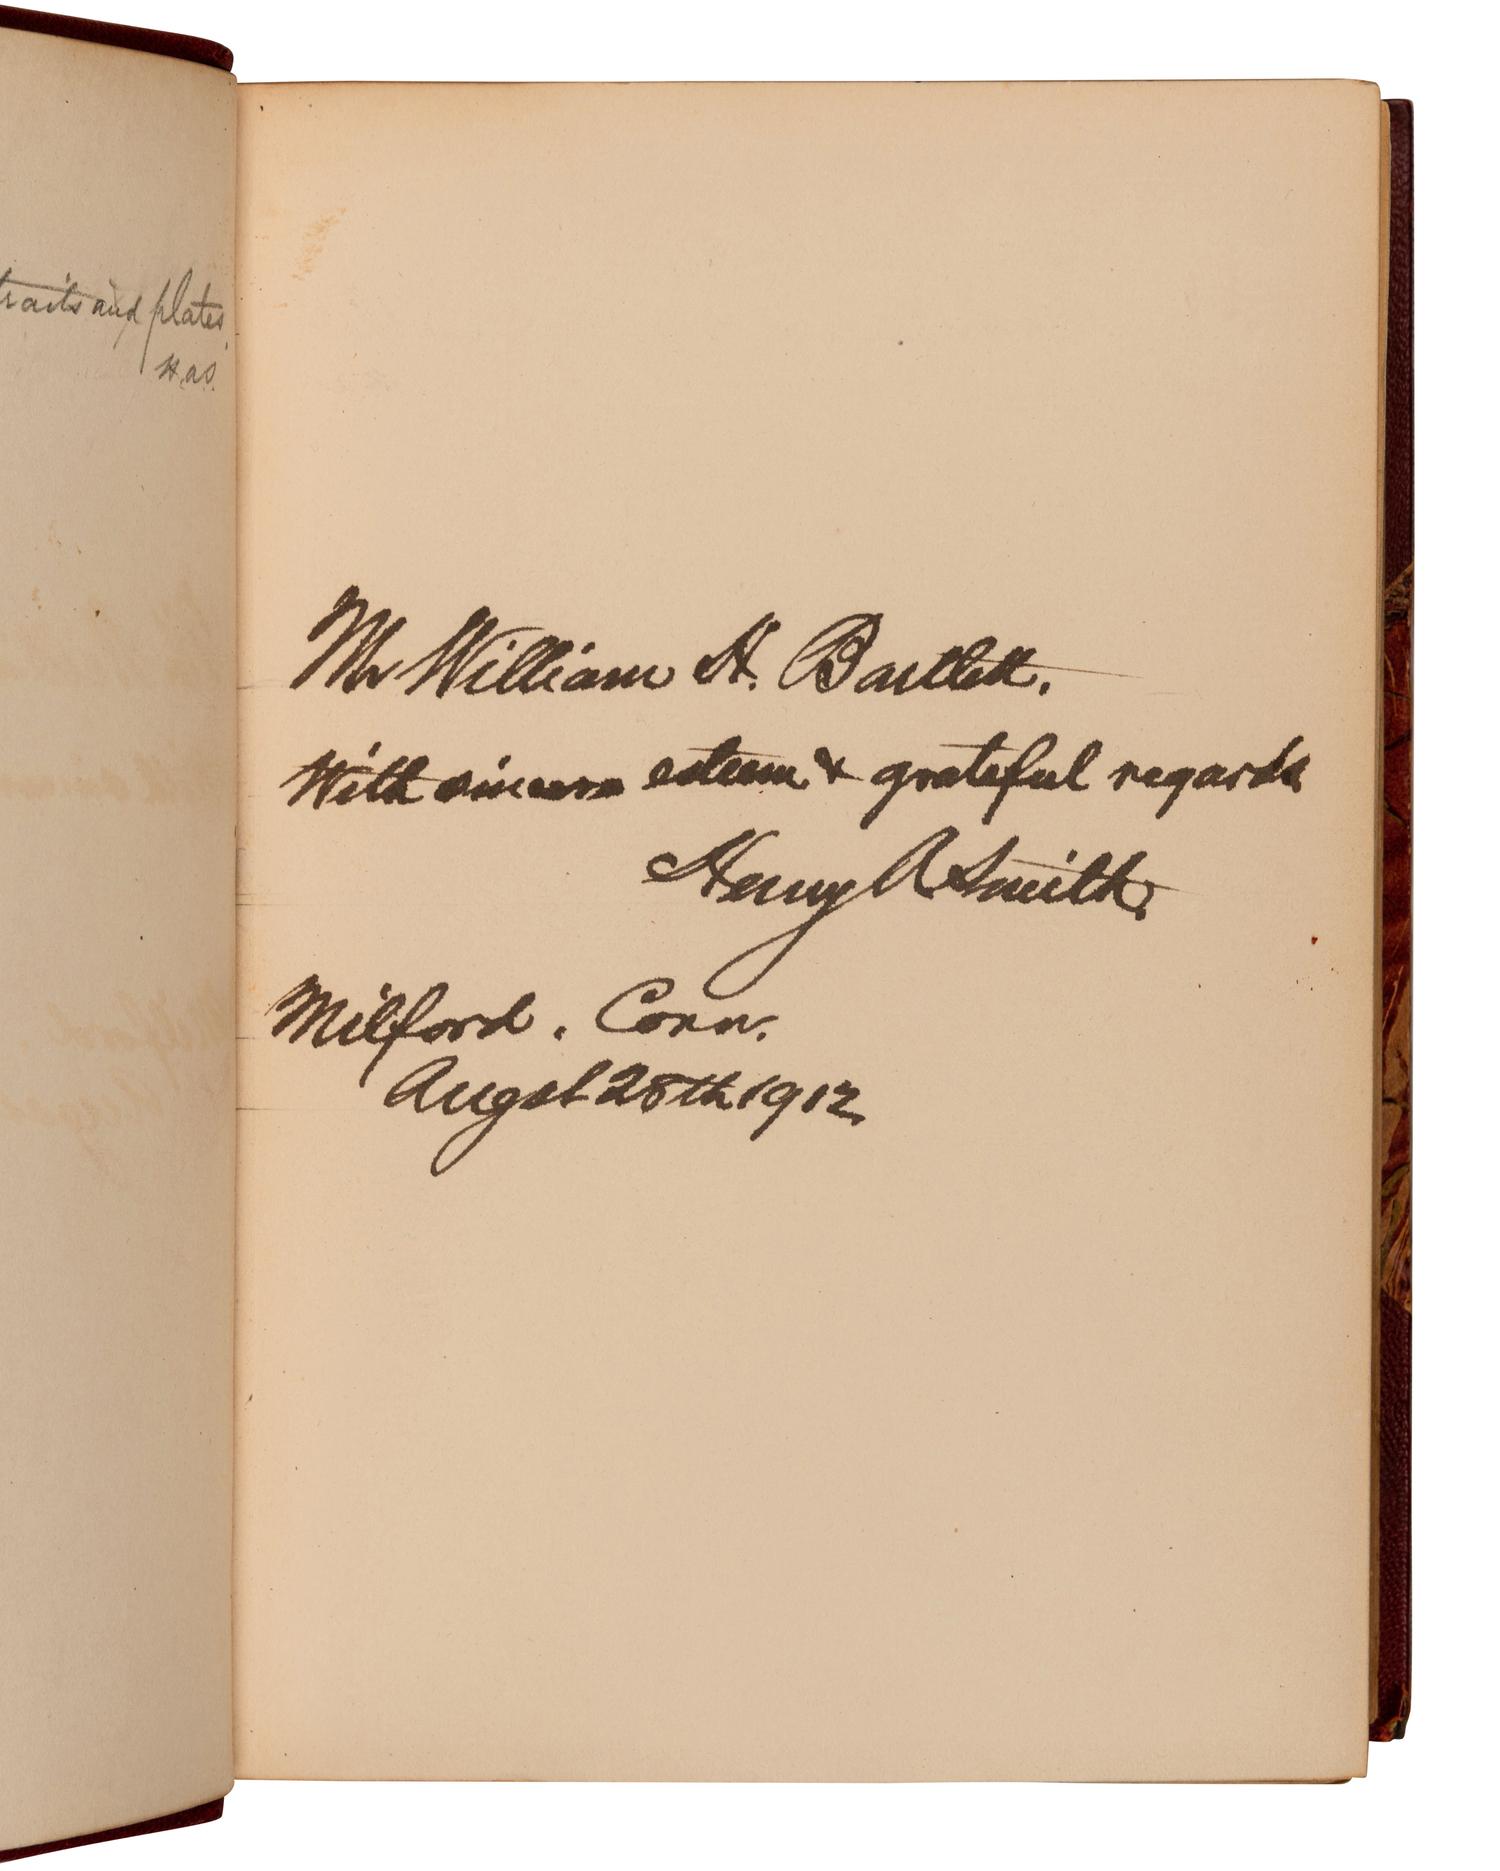 traits and plates
H.A.S.
Mr William H. Bartlett.
With sincere esteem & grateful regards
Henry A Smith.
Milford. Conn.
Augst 28th 1912.